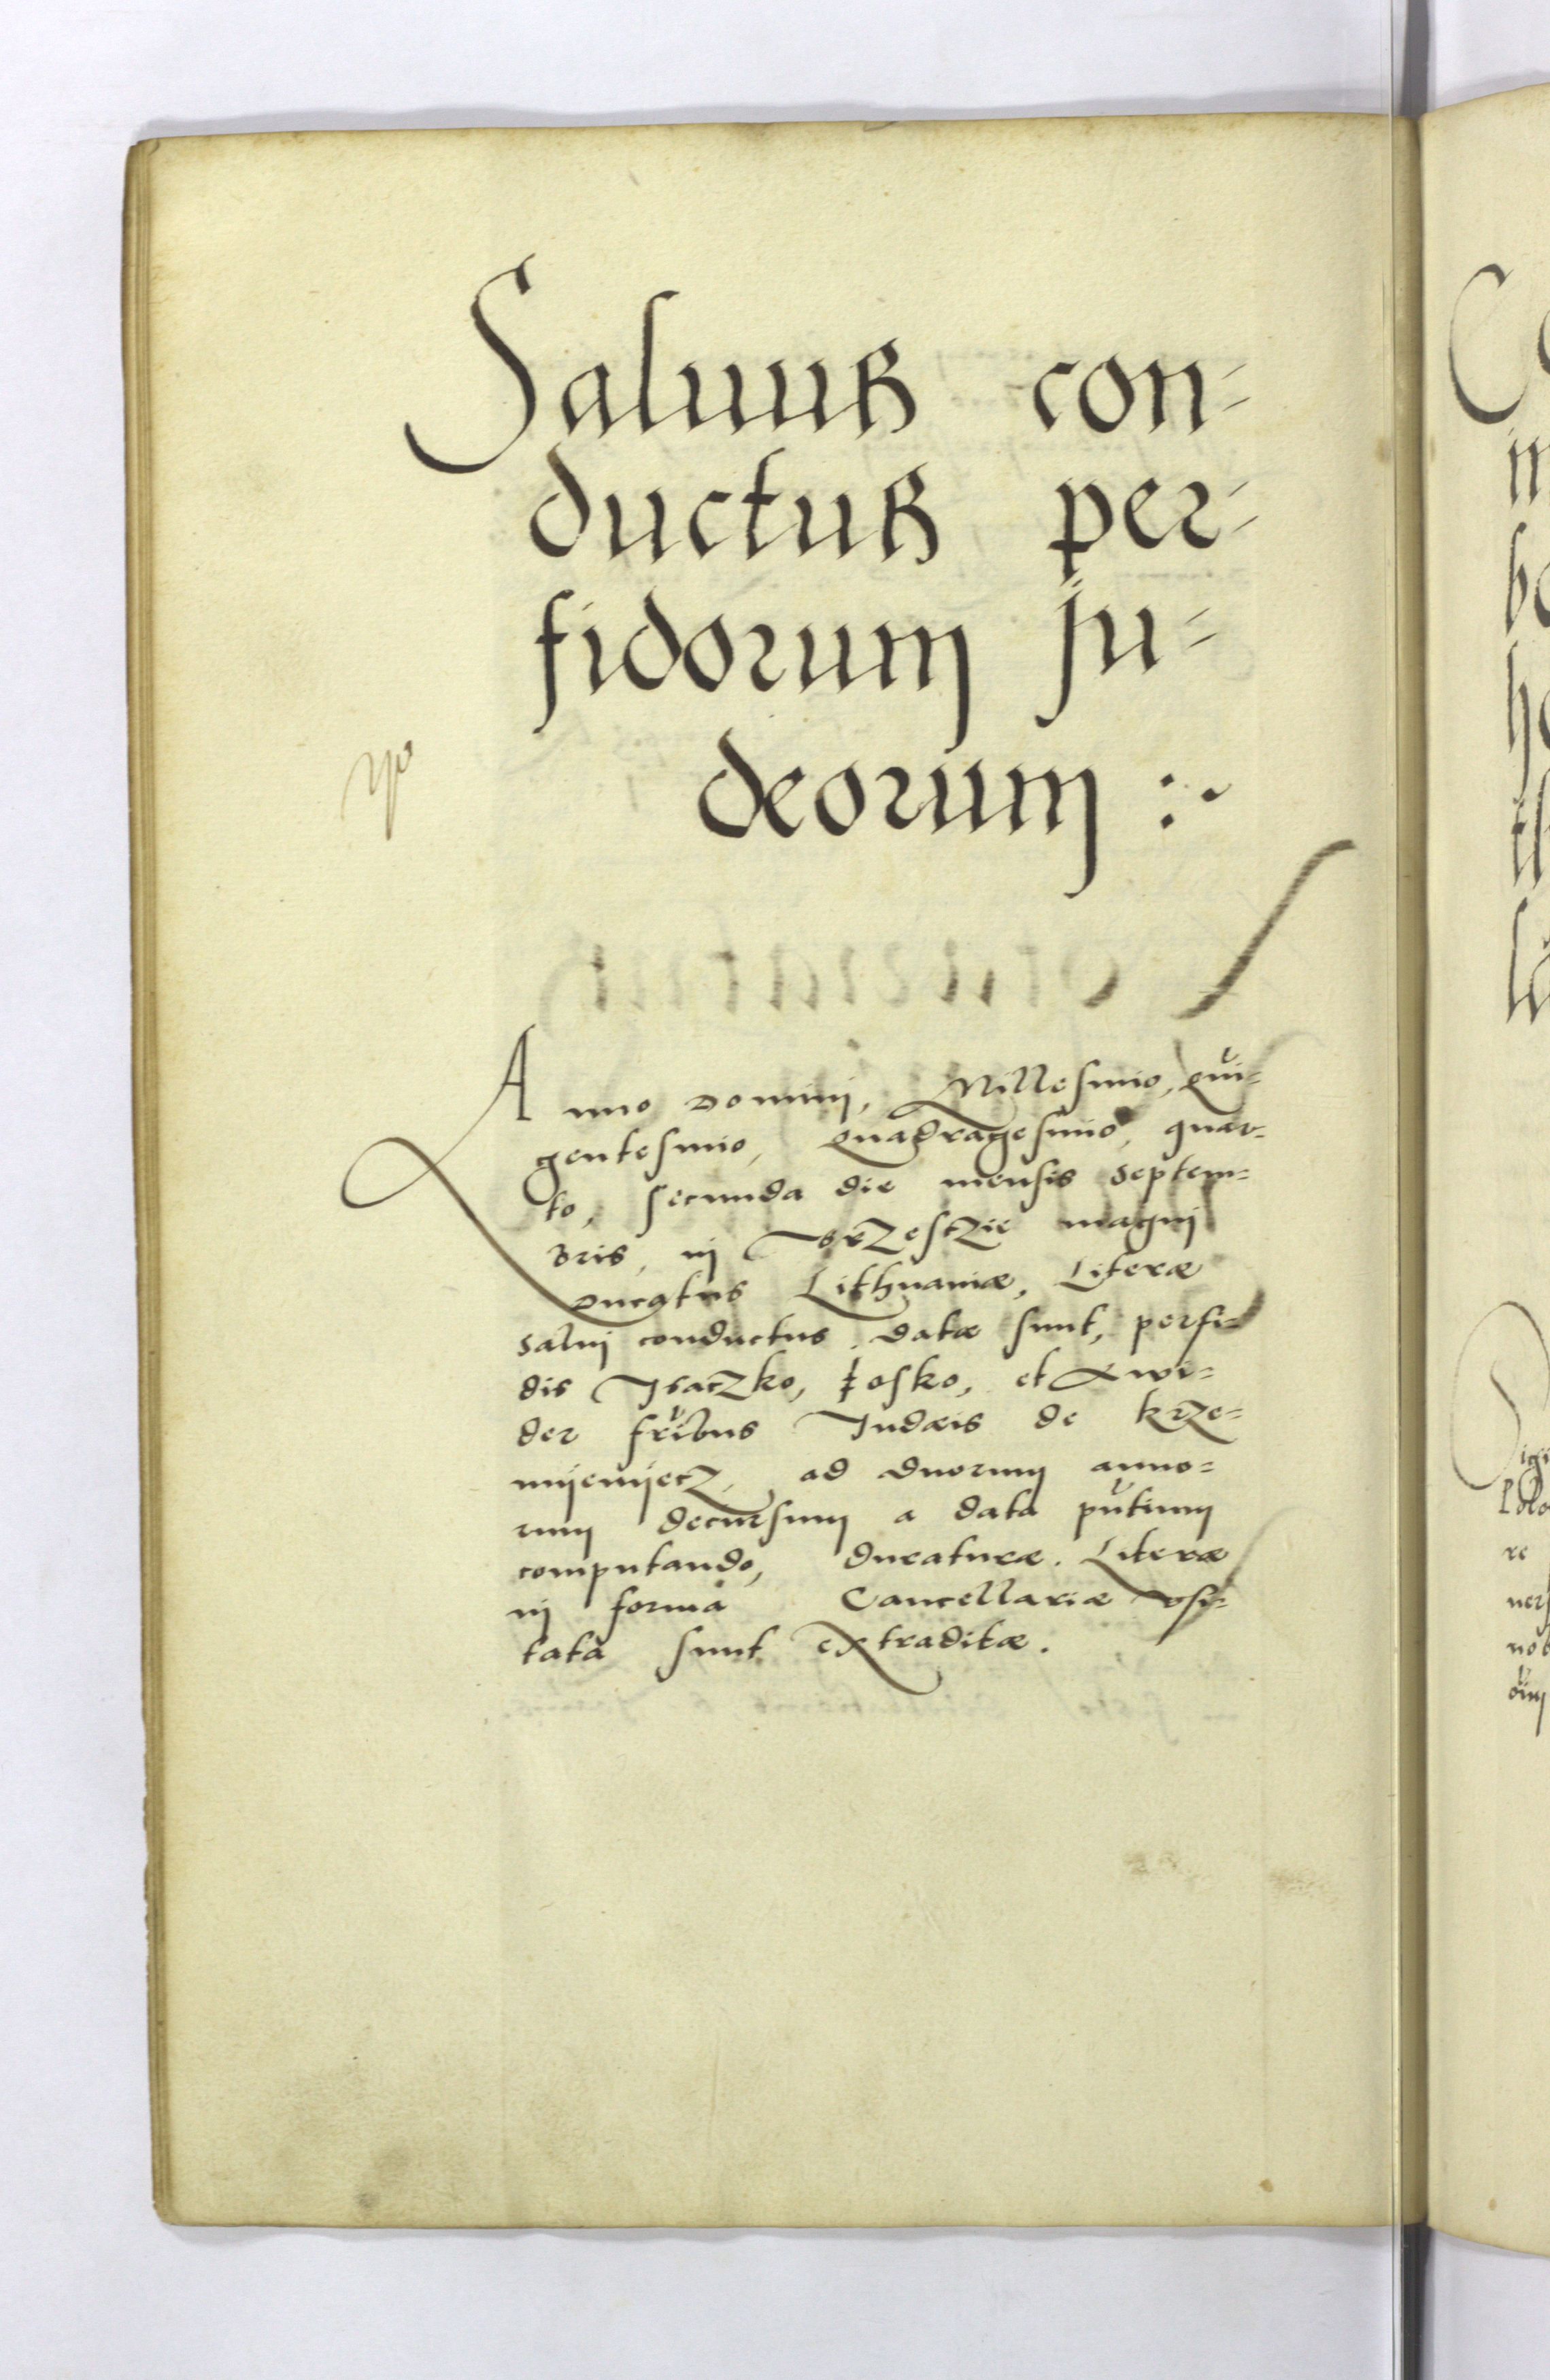 Saluus con-
ductus per-
fidorum Ju-
deorum :~
Anno Domini, Millesimo, qui-
gentesimo, quadragesimo, quar-
to, secunda die mensis Septem-
bris, in Brzesczie magni
Ducatus Lithuaniæ, Literæ
salui conductus datæ sunt, perfi-
dis Isaczko, Josko, et Awi-
der fribus Judæis de Krze-
mijenijecz, ad duorum anno-
rum decursum a data pntium
computando, duraturæ. Literæ
in forma Cancellariæ vsi-
tata sunt extraditæ.